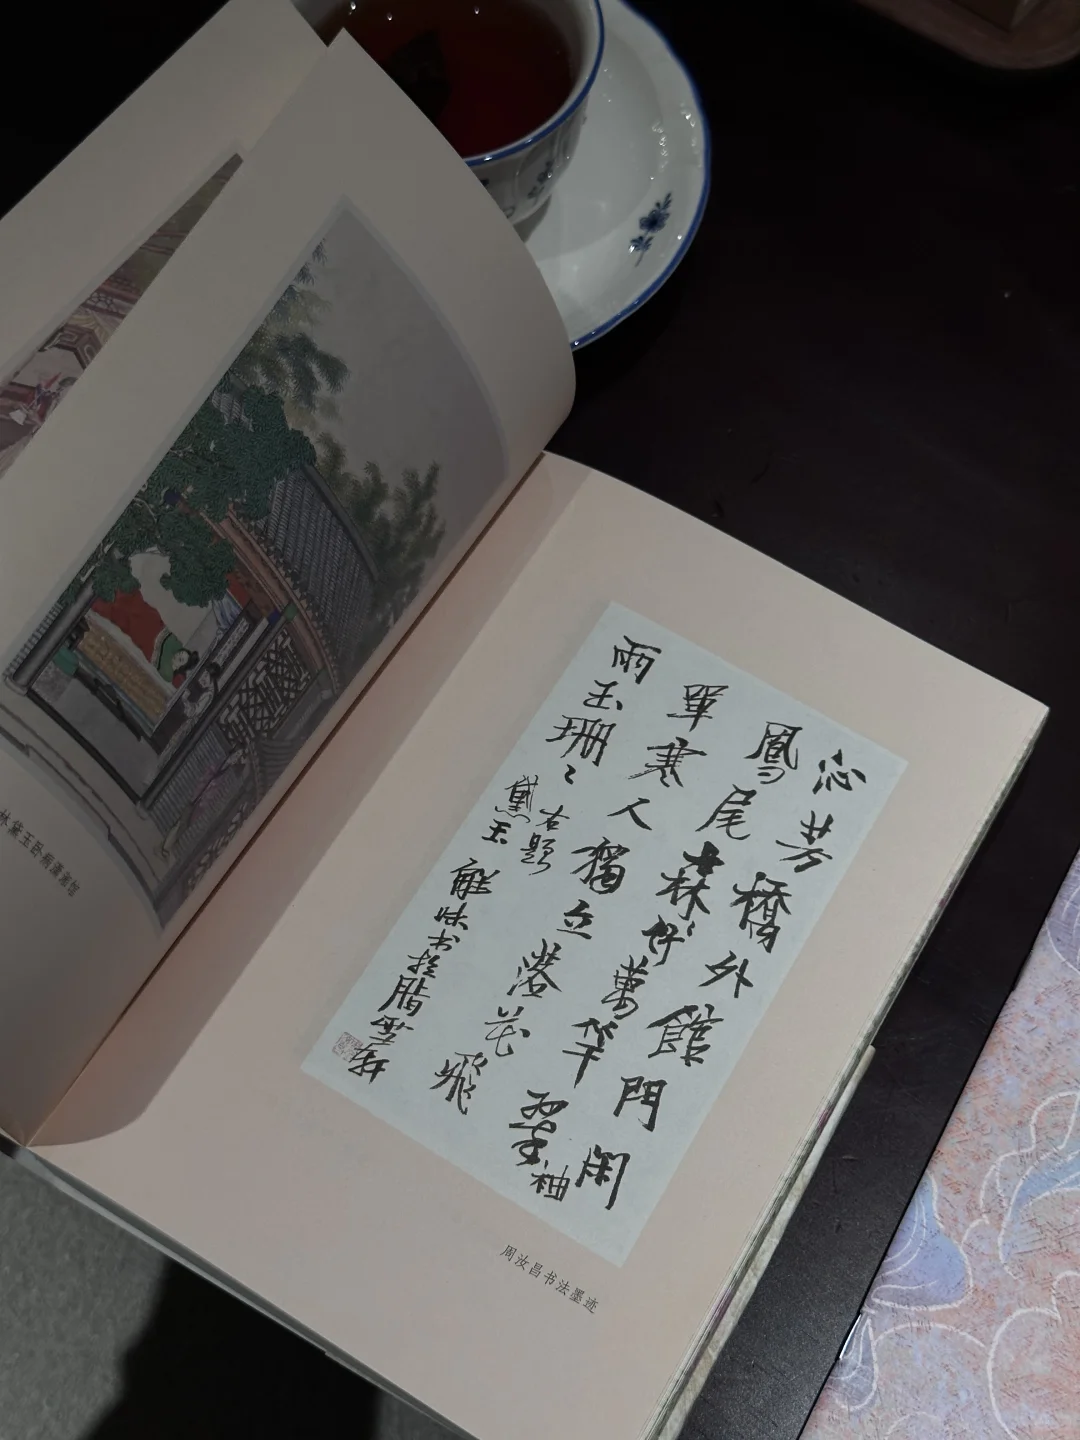 沁芳橋外館門閑
鳳尾森〻好萬竿翠袖
單寒人獨立落花飛
雨玉珊〻
右題
黛玉 解味书於脂雪軒
周汝昌书法墨迹
林黛玉 潇湘馆